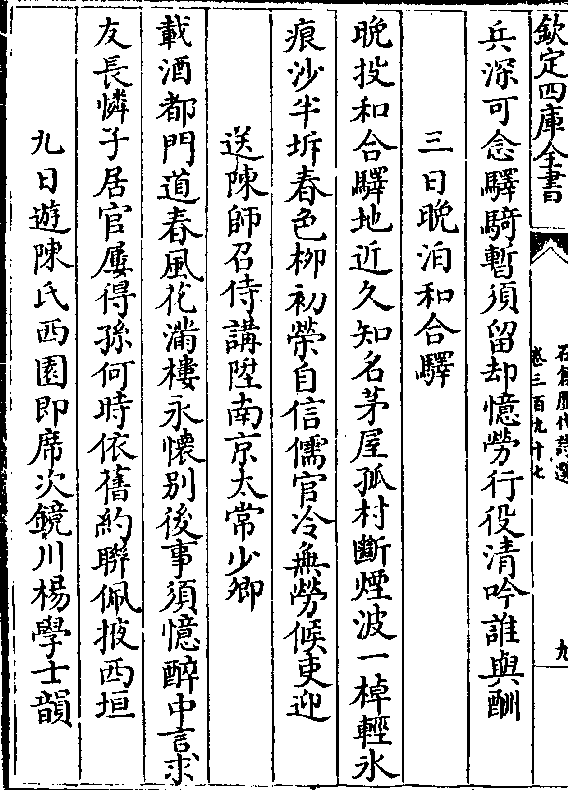 欽定四庫全書
石倉歷代詩選
卷三百九十七
九
兵深可念驛騎暫須留却憶勞行役清吟誰與酬
三日晚泊和合驛
晚投和合驛地近久知名茅屋孤村斷煙波一棹輕氷
痕沙半坼春色栁初榮自信儒官冷無勞候吏迎
送陳師召侍講陞南京太常少卿
載酒都門道春風花滿樓永懷别後事須憶醉中言求
友長憐子居官屢得孫何時依舊約聯佩掖西垣
九日遊陳氏西園即席次鏡川楊學士韻